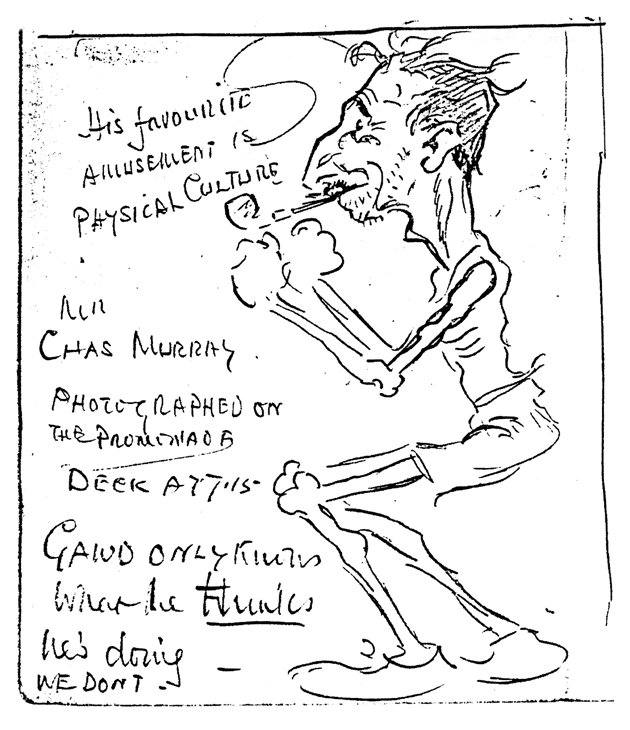 His favourite
AMUSEMENT IS
PHYSICAL CULTURE
MR
CHAS MURRAY.
PHOTOGRAPHED ON
THE PROMENADE
DECK
GAWD ONLY KNOWS
What he thinks
he's doing —
WE DONT.